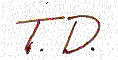 T. D.